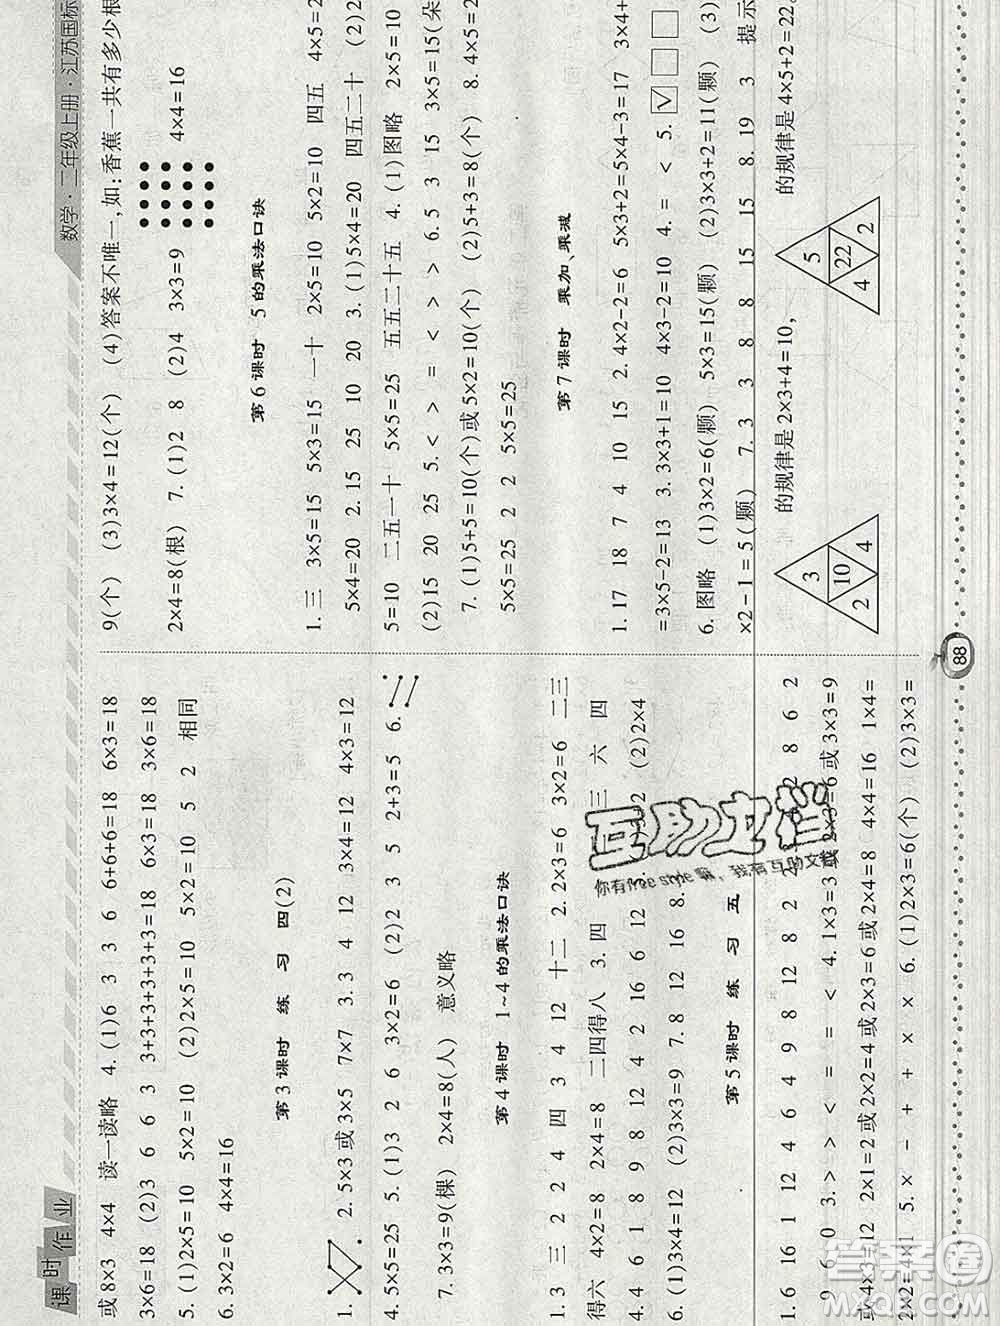 课时作业
数学·二年级上册·江苏国标
或 8×3 4×4 读一读略 4. (1)6 3 3 6 6+6+6=18 6×3=18
3×6=18 (2)3 6 6 3 3+3+3+3+3+3=18 6×3=18 3×6=18
5. (1)2×5=10 5×2=10 (2)2×5=10 5×2=10 5 2 相同
6. 3×2=6 4×4=16
第3课时 练习四(2)
1. 2. 5×3 或 3×5 7×7 3. 3 4 12 3×4=12 4×3=12
4. 5×5=25 5. (1)3 2 6 3×2=6 (2)2 3 5 2+3=5 6.
7. 3×3=9(棵) 2×4=8(人) 意义略
第4课时 1~4的乘法口诀
1. 3 三 2 2 4 四 3 4 12 十二 2. 2×3=6 3×2=6 二三
得六 4×2=8 2×4=8 二四得八 3. 四 三 六 四
4. 4 6 1 8 9 8 12 4 2 16 6 12 (2)2×4
6. (1)3×4=12 (2)3×3=9 7. 8 12 16 8.
第5课时 练习五
1. 6 16 1 12 4 6 4 9 8 12 8 2 2 8 6 2
9 6 0 3. > > < = = < 4. 1×3=3 2×3=6 或 3×3=9
或 4×3=12 2×1=2 或 2×2=4 或 2×3=6 或 2×4=8 4×4=16 1×4=
2×2=4×1 5. × - + + × × 6. (1)2×3=6(个) (2)3×3=
9(个) (3)3×4=12(个) (4)答案不唯一,如:香蕉一共有多少根
2×4=8(根) 7. (1)2 8 (2)4 3×3=9 4×4=16
第6课时 5的乘法口诀
1. 三 3×5=15 5×3=15 一十 2×5=10 5×2=10 四五 4×5=2
5×4=20 2. 15 25 10 20 3. (1)5×4=20 四五二十 (2)2×
5=10 二五一十 5×5=25 五五二十五 4. (1)图略 2×5=10
(2)15 20 25 5. < > = < > > 6. 5 3 15 3×5=15(朵
7. (1)5+5=10(个)或 5×2=10(个) (2)5+3=8(个) 8. 4×5=2
5×5=25 2 2 5×5=25
第7课时 乘加、乘减
1. 17 18 7 4 10 15 2. 4×2-2=6 5×3+2=5×4-3=17 3×4+
=3×5-2=13 3. 3×3+1=10 4×3-2=10 4. = < 5. ✓
6. 图略 (1)3×2=6(颗) 5×3=15(颗) (2)3×3+2=11(颗) (3)
×2-1=5(颗) 7. 3 3 8 8 15 15 8. 19 3 提示
3 2 10 4 的规律是 2×3+4=10, 5 4 22 2 的规律是 4×5+2=22。
88
互助文档
你有free style嘛,我有互助文档
答案圈
MXQE.COM